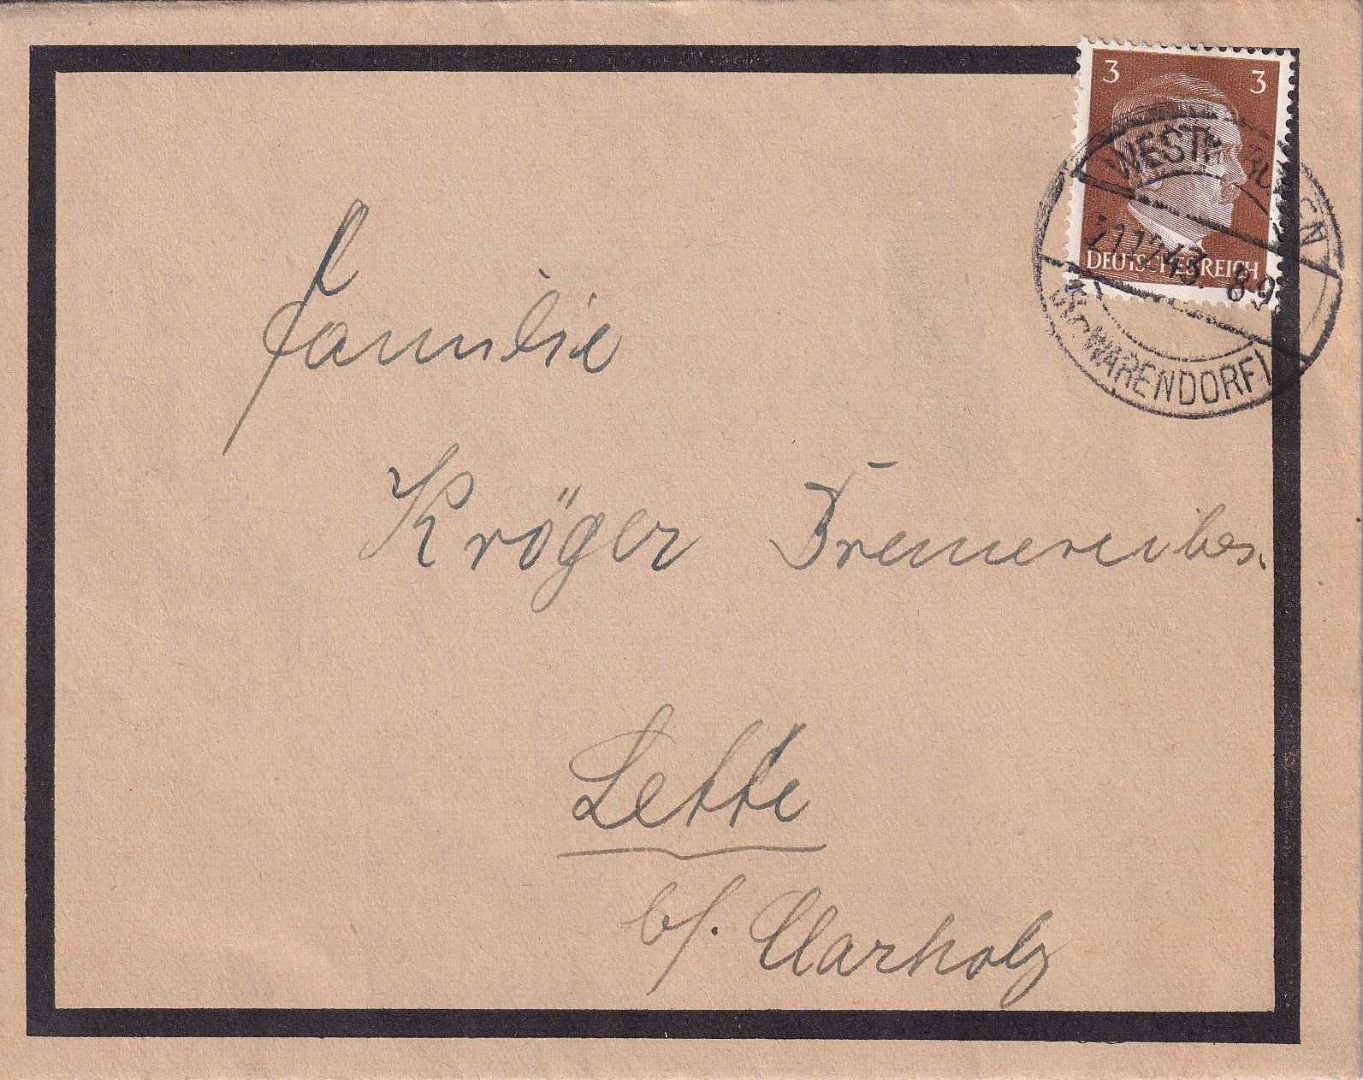 3 3
DEUTSCHES REICH
21.12.43. 8-9
(Kr. WARENDORF)
Familie
Kröger Bremereibes.
Lette
b/. Clarholz